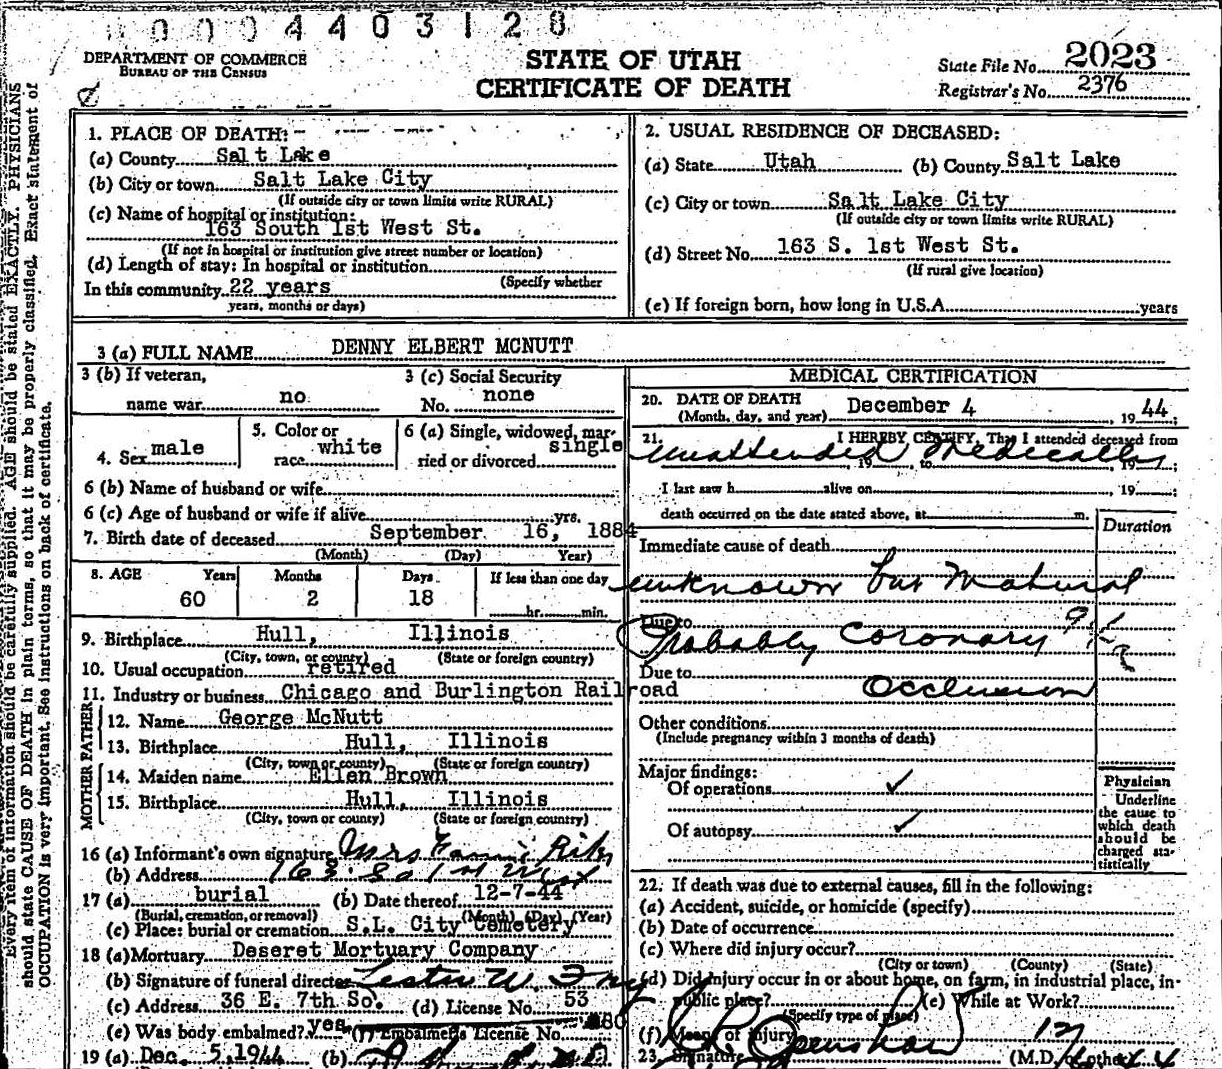 0004403128
DEPARTMENT OF COMMERCE
BUREAU OF THE CENSUS
STATE OF UTAH
CERTIFICATE OF DEATH
State File No. 2023
Registrar's No. 2376
Every item of information should be carefully supplied. AGE should be stated EXACTLY. PHYSICIANS
should state CAUSE OF DEATH in plain terms, so that it may be properly classified. Exact statement of
OCCUPATION is very important. See instructions on back of certificate.
1. PLACE OF DEATH:
(a) County Salt Lake
(b) City or town Salt Lake City
(If outside city or town limits write RURAL)
(c) Name of hospital or institution:
163 South 1st West St.
(If not in hospital or institution give street number or location)
(d) Length of stay: In hospital or institution
(Specify whether
In this community 22 years
years, months or days)
2. USUAL RESIDENCE OF DECEASED:
(a) State Utah (b) County Salt Lake
(c) City or town Salt Lake City
(If outside city or town limits write RURAL)
(d) Street No. 163 S. 1st West St.
(If rural give location)
(e) If foreign born, how long in U.S.A. years
3 (a) FULL NAME DENNY ELBERT MCNUTT
3 (b) If veteran,
name war no
3 (c) Social Security
No. none
4. Sex male
5. Color or
race white
6 (a) Single, widowed, mar-
ried or divorced single
6 (b) Name of husband or wife
6 (c) Age of husband or wife if alive yrs.
7. Birth date of deceased September 16, 1884
(Month) (Day) Year)
8. AGE Years Months Days If less than one day
60 2 18 hr. min.
9. Birthplace Hull, Illinois
(City, town, or county) (State or foreign country)
10. Usual occupation retired
11. Industry or business Chicago and Burlington Railroad
FATHER
12. Name George McNutt
13. Birthplace Hull, Illinois
(City, town or county) (State or foreign country)
MOTHER
14. Maiden name Ellen Brown
15. Birthplace Hull, Illinois
(City, town or county) (State or foreign country)
16 (a) Informant's own signature Mrs
(b) Address 163 So 1st West
17 (a) burial (b) Date thereof 12-7-44
(Burial, cremation, or removal) (Month) (Day) (Year)
(c) Place: burial or cremation S.L. City Cemetery
18 (a) Mortuary Deseret Mortuary Company
(b) Signature of funeral director
(c) Address 36 E. 7th So. (d) License No. 53
(e) Was body embalmed? yes (f) Embalmer's License No.
19 (a) Dec. 5, 1944 (b)
MEDICAL CERTIFICATION
20. DATE OF DEATH
(Month, day, and year) December 4, 1944;
21. I HEREBY CERTIFY, That I attended deceased from
Unattended Medically
, 19 to , 19 ;
I last saw h alive on , 19 ;
death occurred on the date stated above, at m.
Duration
Immediate cause of death
unknown but Natural
Due to
Probably Coronary ?
Due to
Occlusion
Other conditions
(Include pregnancy within 3 months of death)
Major findings:
Of operations
Of autopsy
Physician
Underline
the cause to
which death
should be
charged sta-
tistically
22. If death was due to external causes, fill in the following:
(a) Accident, suicide, or homicide (specify)
(b) Date of occurrence
(c) Where did injury occur?
(City or town) (County) (State)
(d) Did injury occur in or about home, on farm, in industrial place, in
public place? (e) While at Work?
(Specify type of place)
(f) Means of injury
23. Signature (M.D. or other)